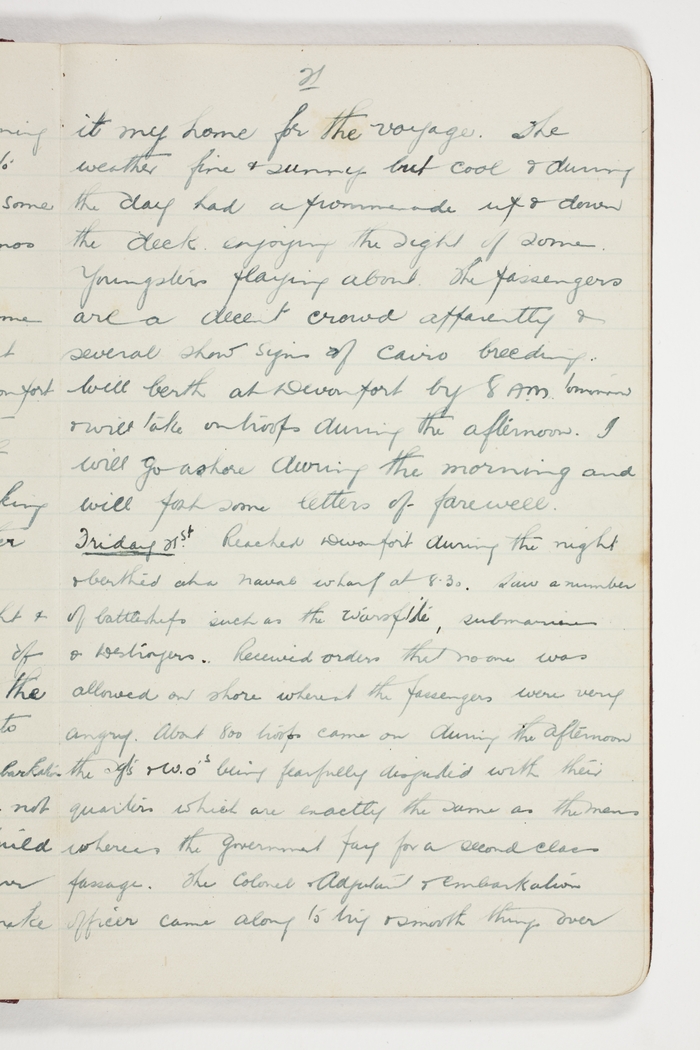 21
it my home for the voyage. The
weather fine & sunny but cool & during
the day had a prommenade up & down
the deck enjoying the sight of some
Youngsters playing about. The passengers
are a decent crowd apparently &
several show signs of Cairo breeding.
Will berth at Devonport by 8 AM.
& will take on troops during the afternoon. I
will go ashore during the morning and
will post some letters of farewell.
Friday 21st. Reached Devonport during the night
& berthed at a naval wharf at 8.30. Saw a number
of battleships such as the Warspite, submarines
& Destroyers. Received orders that no one was
allowed on shore whereat the passengers were very
angry. About 800 troops came on during the afternoon
the Sgts & W.O's being fearfully disgusted with their
quarters which are exactly the same as the mens
whereas the Government pay for a second class
passage. The Colonel & Adjutant & embarkation
officer came along to try & smooth things over
ning
some
me
t
king
er
ht &
of
the
to
barkation
not
uild
ver
make